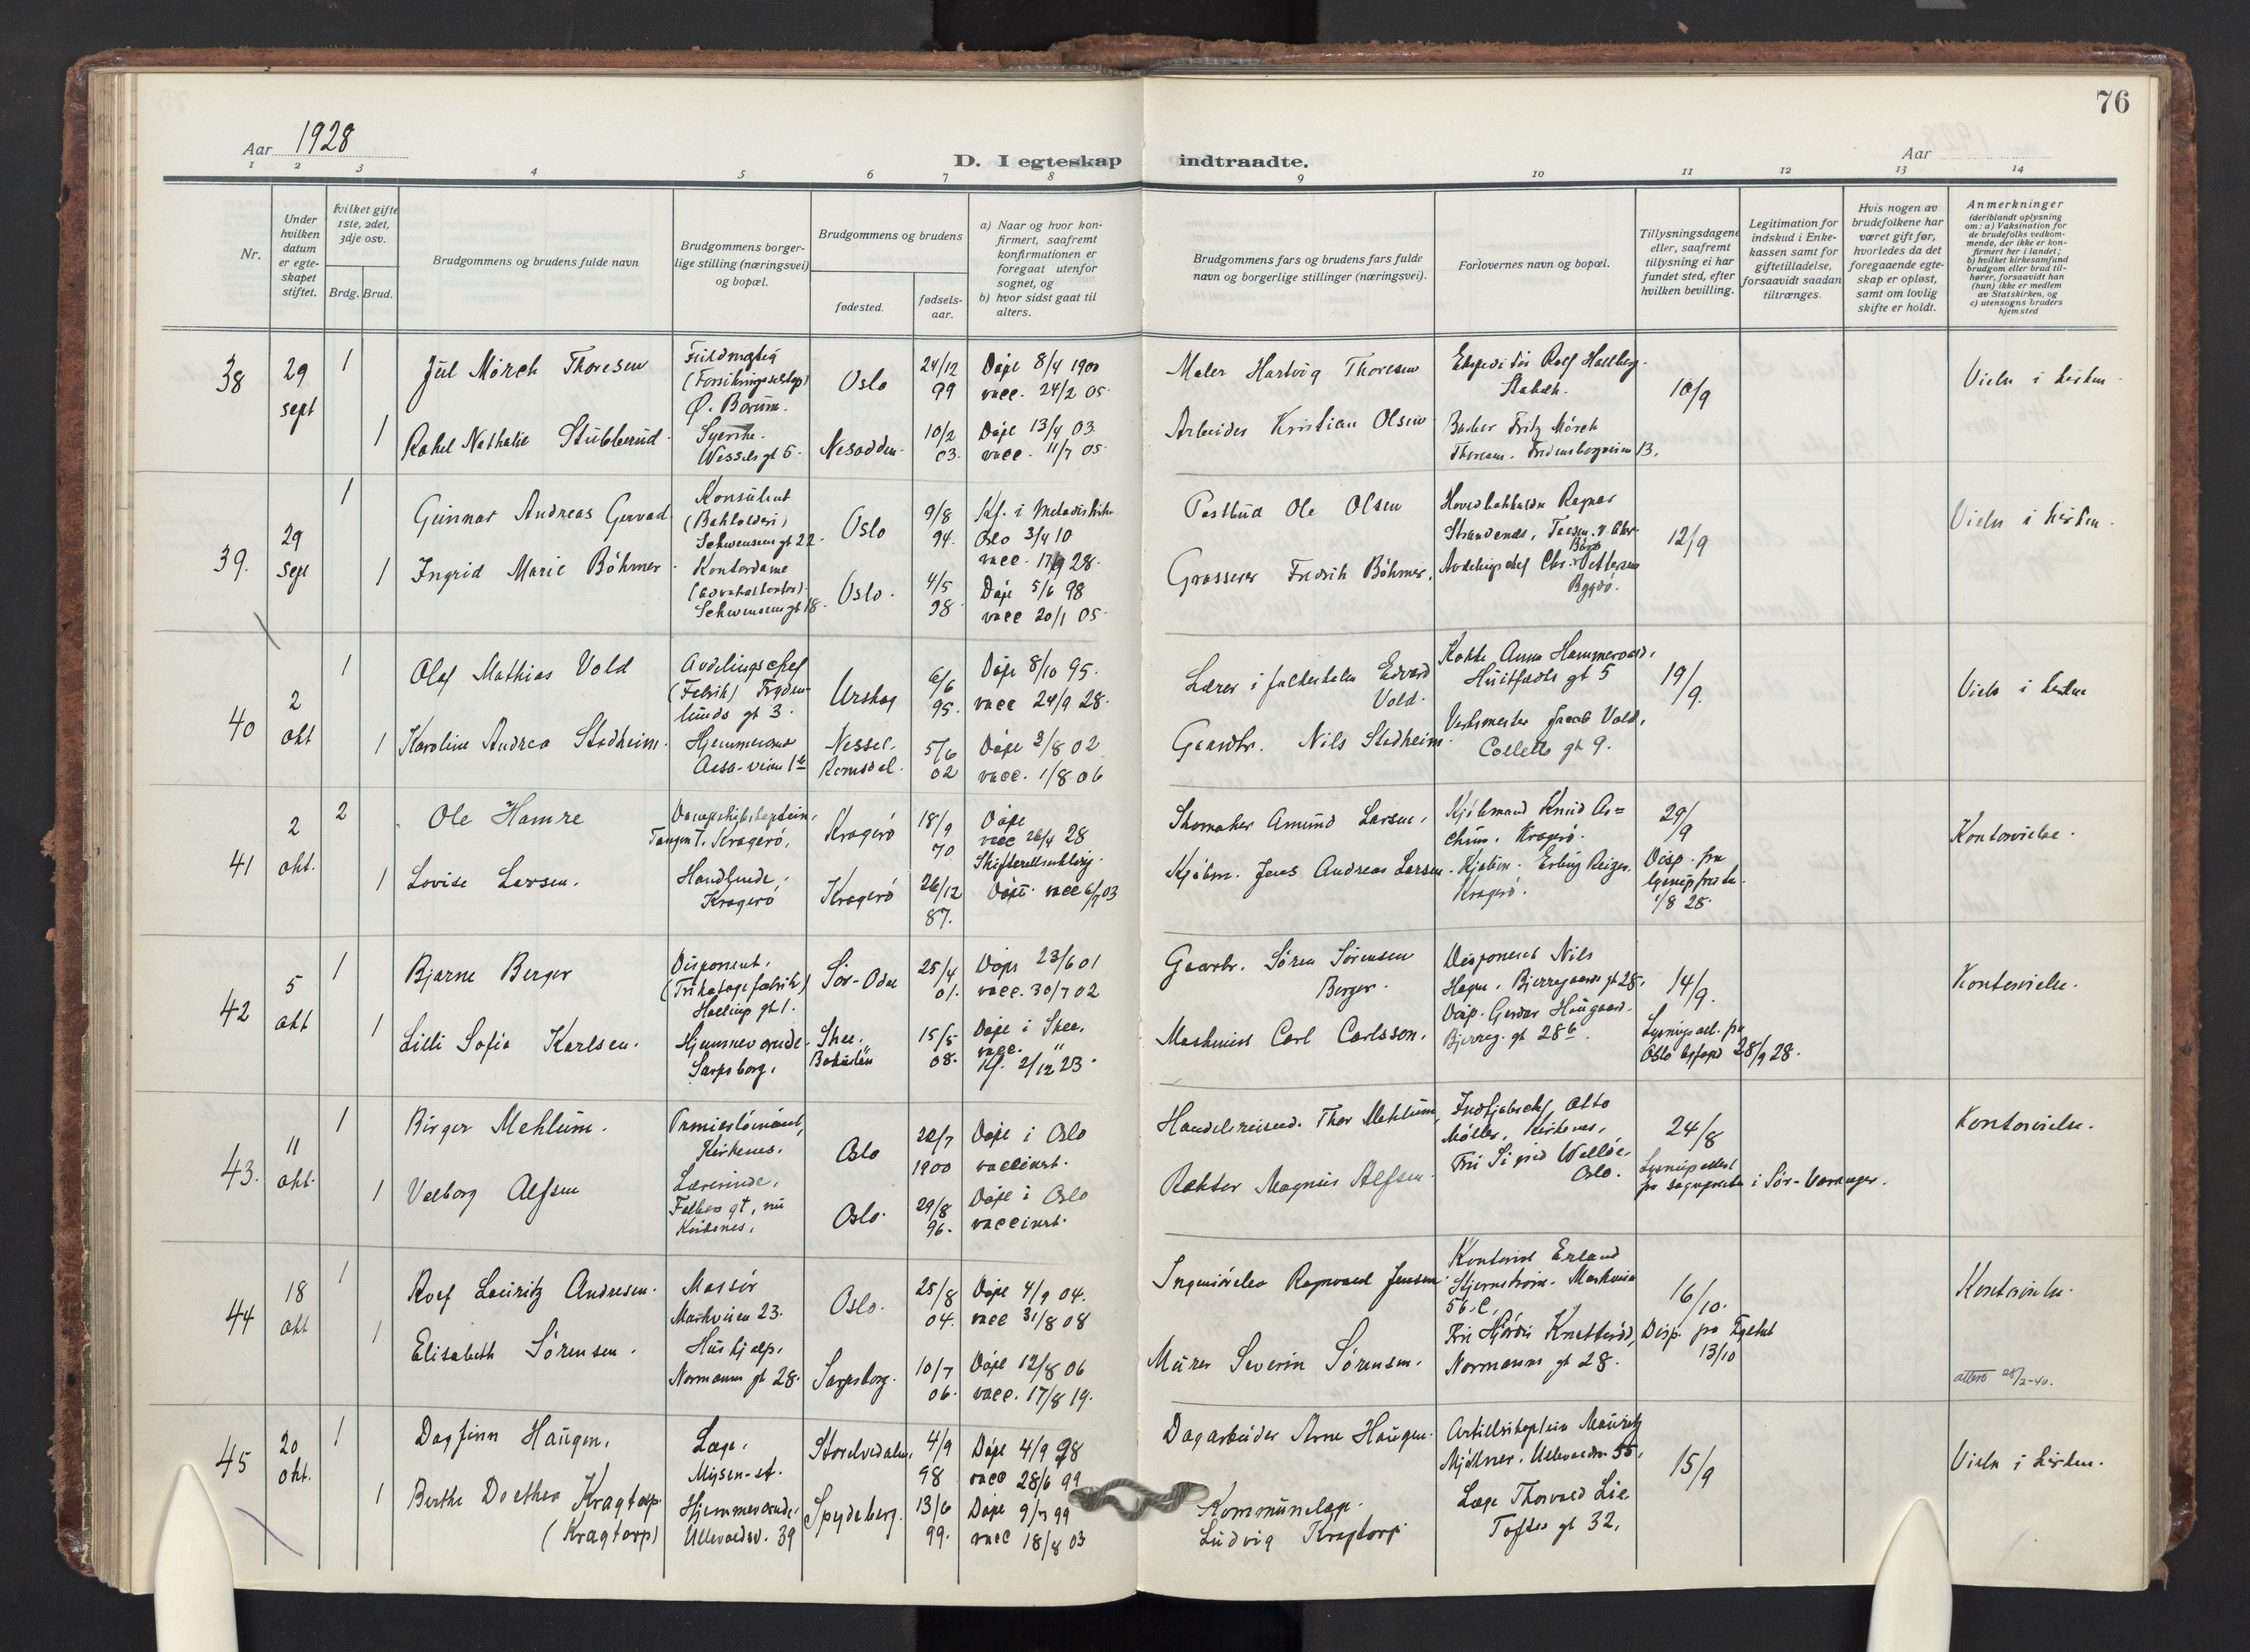 76
Aar 1928
D. I egteskap indtraadte.
Aar
1 2 3 4 5 6 7 8 9 10 11 12 13 14
Nr.
Under hvilken datum er egteskapet stiftet.
hvilket gifte 1ste, 2det, 3dje osv.
Brdg. Brud.
Brudgommens og brudens fulde navn
Brudgommens borgerlige stilling (næringsvei) og bopæl.
Brudgommens og brudens
fødested.
fødsels-aar.
a) Naar og hvor konfirmert, saafremt konfirmationen er foregaat utenfor sognet, og
b) hvor sidst gaat til alters.
Brudgommens fars og brudens fars fulde navn og borgerlige stillinger (næringsvei).
Forlovernes navn og bopæl.
Tillysningsdagene eller, saafremt tillysning ei har fundet sted, efter hvilken bevilling.
Legitimation for indskud i Enkekassen samt for giftetilladelse, forsaavidt saadan tiltrænges.
Hvis nogen av brudefolkene har været gift før, hvorledes da det foregaaende egteskap er opløst, samt om lovlig skifte er holdt.
Anmerkninger
(deriblandt oplysning om: a) Vaksination for de brudefolks vedkommende, der ikke er konfirmert her i landet; b) hvilket kirkesamfund brudgom eller brud tilhører, forsaavidt han (hun) ikke er medlem av Statskirken, og c) utensogns bruders hjemsted
38 29 sept 1
Jul Mørch Thoresen
Fuldmægtig
Ø. Bærum.
Oslo
24/12 99
Døpt 8/4 1900
vacc. 24/2 05.
Maler Hartvig Thoresen
Rolf Hallberg
Stabæk.
10/9
Vielse i kirken
1
Rakel Nathalie Stubberud
Syerske.
Wessels gt 5.
Nesodden
10/2 03.
Døpt 13/4 03
vacc. 11/7 05.
Arbeider Kristian Olsen
Fritz Mørch
Thoresen. Fredensborgveien 13.
39. 29 sept 1
Gunnar Andreas Gervad
Konsulent
Schwensens gt 22.
Oslo
9/8 94.
Kf. i Metodistkirken
Oslo 3/4 10
vacc. 17/9 28.
Postbud Ole Olsen
Ragnar
12/9
Vielse i kirken.
1
Ingrid Marie Bøhmer
Kontordame
Schwensens gt 18.
Oslo.
4/5 98
Døpt 5/6 98
vacc 20/1 05
Grosserer Fredrik Bøhmer,
Avdelingschef Chr. Pettersen
Bygdø.
40 2 okt 1
Olaf Mathias Vold
Avdelingschef
(Fabrik) Fryden-
lunds gt 3.
Urskog
6/6 95.
Døpt 8/10 95.
vacc 24/9 28.
Lærer i folkeskolen Edvard
Vold.
Kokke Anna Hammervold,
Huitfeldts gt 5
19/9.
Vielse i kirken
1
Karoline Andrea Stedheim.
Nesset,
Romsdal.
5/6 02
Døpt 3/8 02
vacc. 1/8 06
Gaardbr. Nils Stedheim
Verksmester Jacob Vold,
Colletts gt 9.
41 2 okt. 2
Ole Hamre
Dampskibskaptein,
Tangen T. Kragerø,
Kragerø
18/9 70
Døpt
vacc 26/4 28
Skomaker Amund Larsen,
Kjøbmand Knud As=
Kragerø.
29/9
Kontorvielse.
1
Lovise Larsen.
Handlende.
Kragerø
Kragerø
26/12 87.
Døpt. vacc 6/7 03
Kjøbm. Jens Andreas Larsen.
Kjøbm. Erling Reizer.
Kragerø.
Disp. fra
1/8 28.
42 5 okt 1
Bjarne Berger
Disponent.
(Trikotagefabrik)
Hallings gt 1.
Sør-Odal
25/4 01.
Døpt 23/6 01
vacc. 30/7 02
Gaardbr. Søren Sørensen
Berger.
Disponent Nils
Hagen. Bjerregaards gt 28.
14/9.
Kontorvielse.
1
Lilli Sofie Karlsen.
Hjemmeværende.
Sarpsborg.
Skee.
Bohuslän
15/5 08.
Døpt i Skee.
vacc. "
Kf. 2/12 23.
Maskinist Carl Carlsson.
Disp. Haugaard.
Bjerreg. gt 28b.
Lysningsatt. fra
Oslo 28/9 28.
43. 11 okt. 1
Birger Mehlum.
Premierløinant,
Kirkenes.
Oslo
1900
Døpt i Oslo
vaccinert.
Handelsreisend. Thor Mehlum
Otto
Møller. Kirkenes.
24/8
Kontorvielse.
1
Valborg Alfsen
Lærerinde.
Falbes gt, nu
Kirkenes.
Oslo.
29/8 96.
Døpt i Oslo
vaccinert.
Rektor Magnus Alfsen.
Frk Sigrid
Oslo.
Lysningsattest
fra sognepresten i Sør-Varanger.
44 18 okt 1
Rolf Lauritz Andresen.
Massør
Markveien 23.
Oslo.
25/8 04.
Døpt 4/9 04.
vacc 31/8 08
Ragnvald Jensen
Kontorist Erland
Stjernstrøm. Markveien
56.C.
16/10.
Kontorvielse.
1
Elisabeth Sørensen.
Hushjelp.
Normanns gt 28.
Sarpsborg.
10/7 06.
Døpt 12/8 06
vacc. 17/8 19.
Murer Severin Sørensen.
Frk Hjørdis
Normanns gt 28.
13/10
attest 28/2-40.
45 20 okt. 1
Dagfinn Haugen.
Læge.
Mysen-st.
Storelvedalen,
4/9 98
Døpt 4/9 98
vacc 28/6 99
Dagarbeider Arne Haugen.
Artillerikaptein Mauritz
Ullevaalsv. 55,
15/9
Vielse i kirken.
1
Berthe Dorthea Kragtorp
(Kragtorp)
Hjemmeværende.
Ullevaalsv. 39
Spydeberg.
13/6 99.
Døpt 9/7 99
vacc 18/8 03
Kommunelæge.
Ludvig Kragtorp
Læge Thorvald Lie
Toftes gt 32.